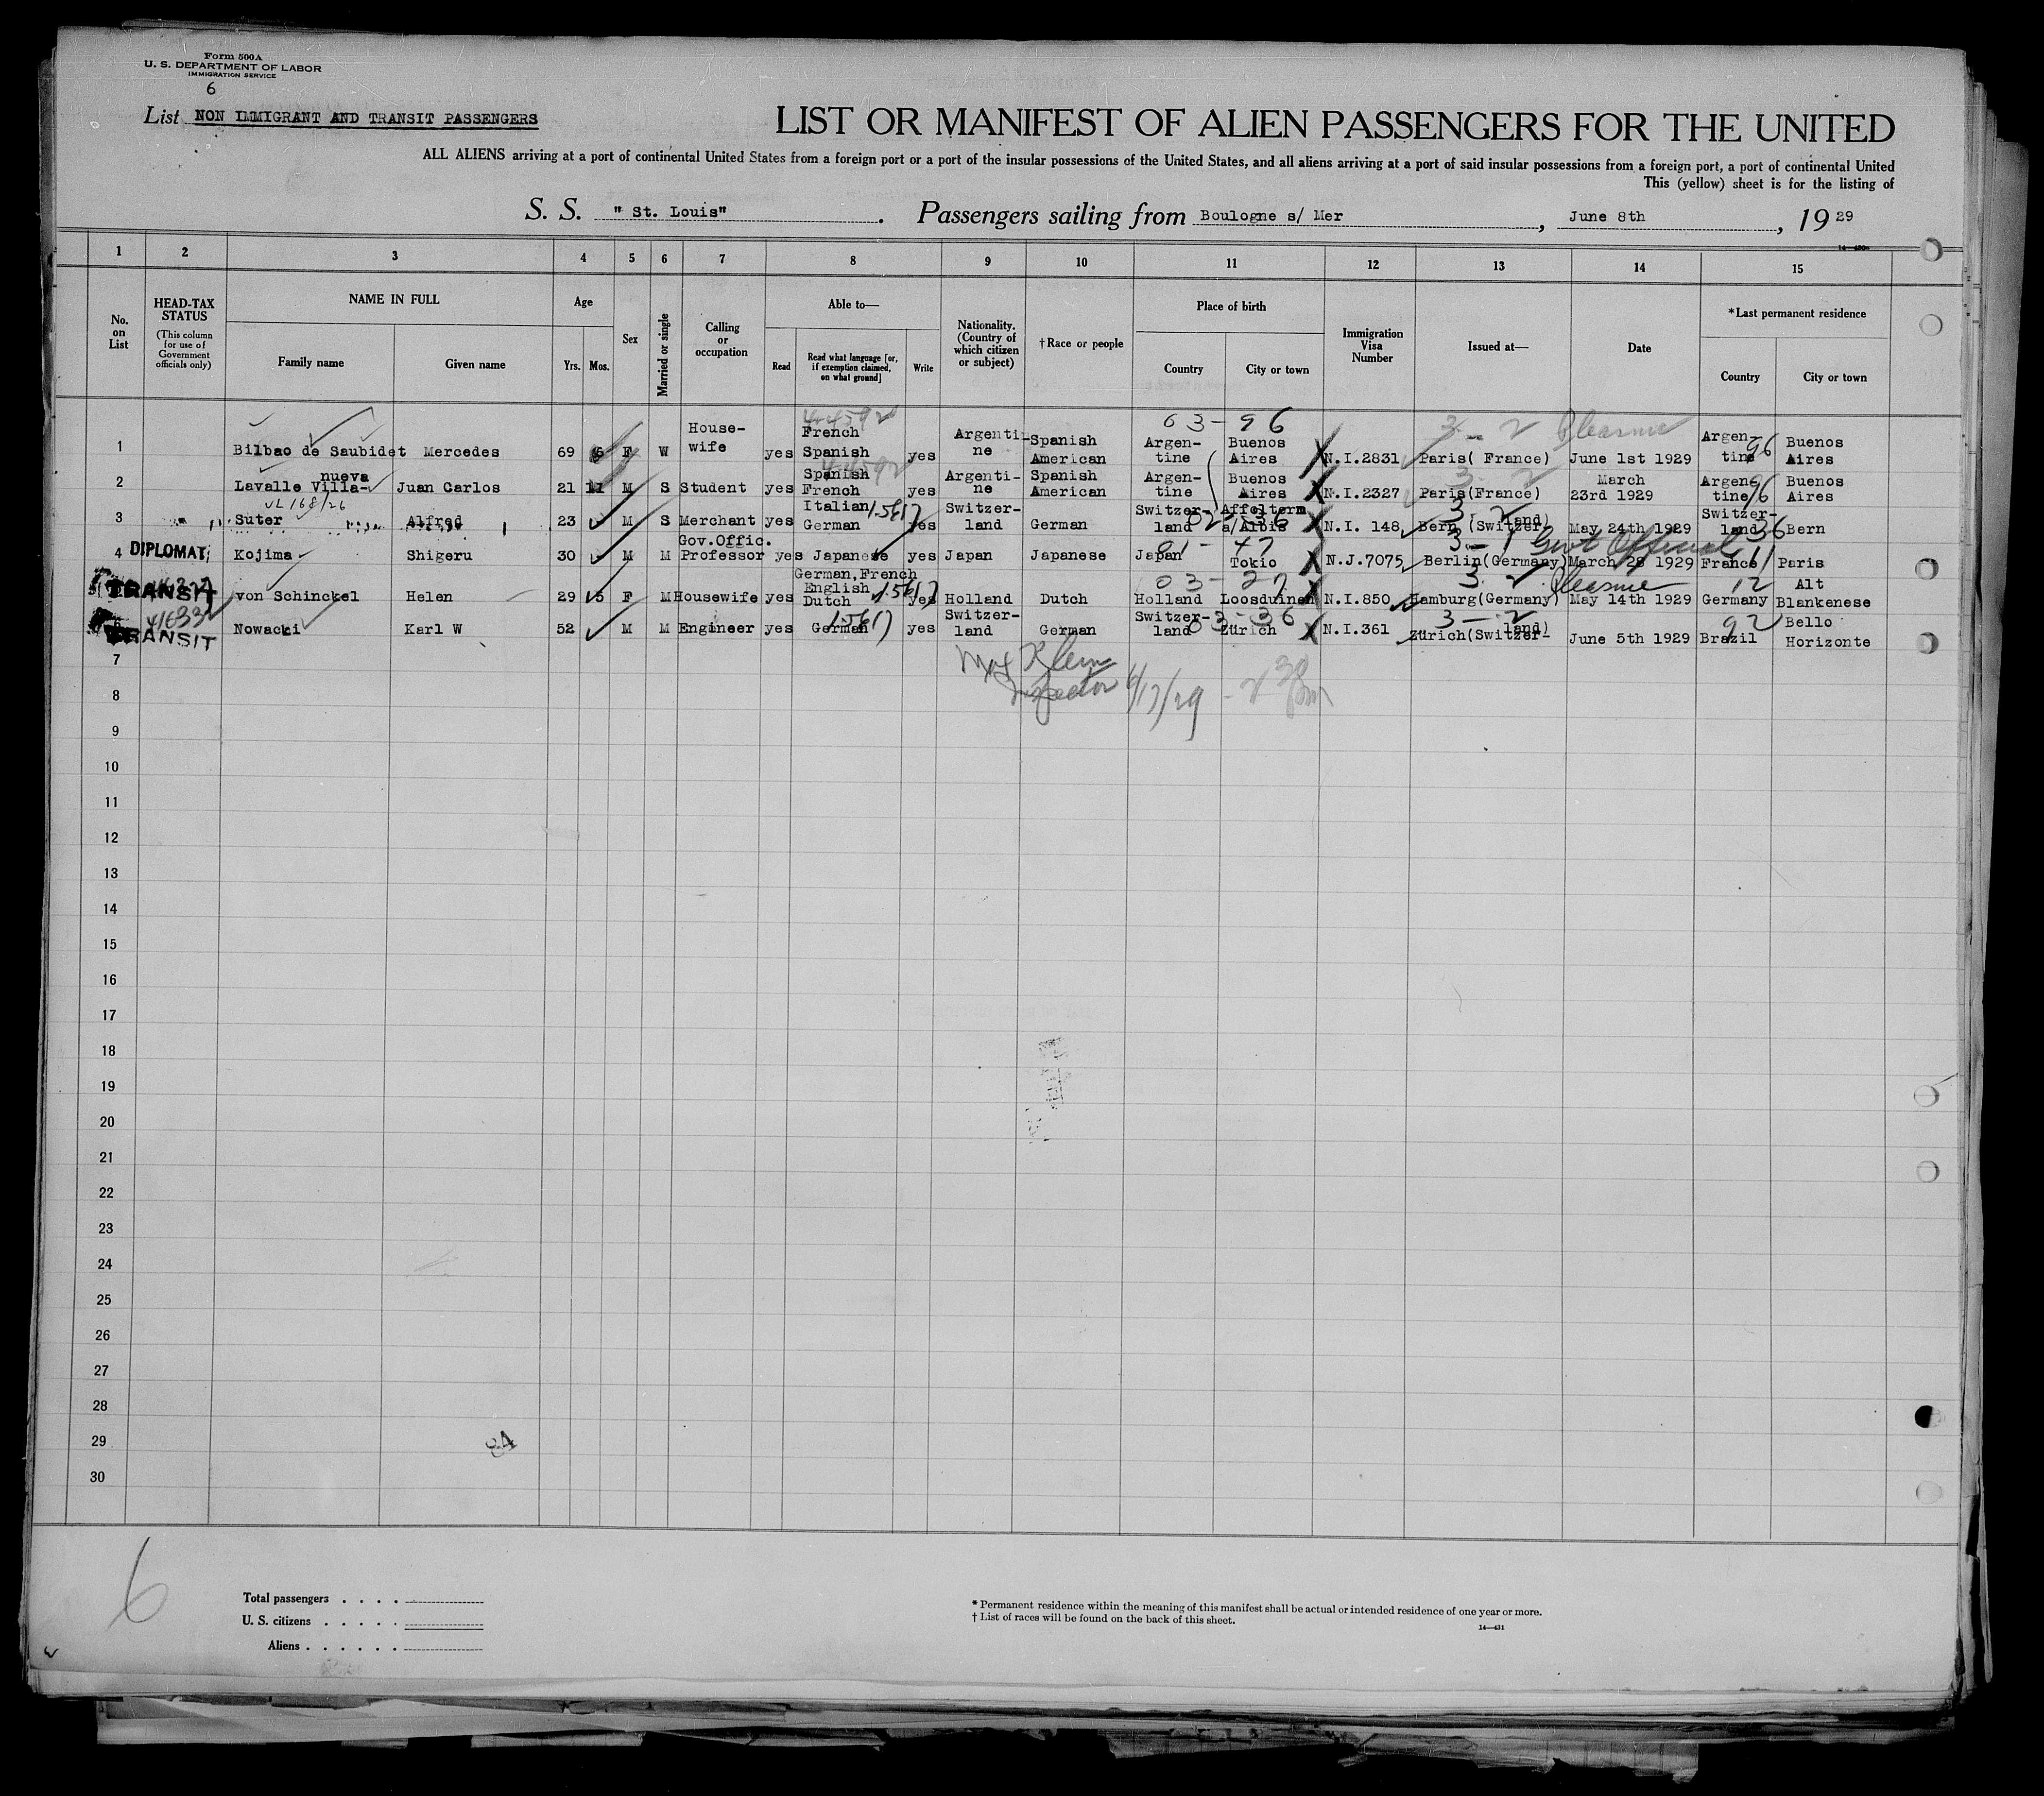 Form 500A
U. S. DEPARTMENT OF LABOR
IMMIGRATION SERVICE
6
List NON IMMIGRANT AND TRANSIT PASSENGERS
LIST OR MANIFEST OF ALIEN PASSENGERS FOR THE UNITED
ALL ALIENS arriving at a port of continental United States from a foreign port or a port of the insular possessions of the United States, and all aliens arriving at a port of said insular possessions from a foreign port, a port of continental United
This (yellow) sheet is for the listing of
S. S. " St. Louis" . Passengers sailing from Boulogne s/ Mer , June 8th , 19 29
14—430
1 2 3 4 5 6 7 8 9 10 11 12 13 14 15
No. on List
HEAD-TAX STATUS
(This column for use of Government officials only)
NAME IN FULL
Family name
Given name
Age
Yrs.
Mos.
Sex
Married or single
Calling or occupation
Able to—
Read
Read what language [or, if exemption claimed, on what ground]
Write
Nationality. (Country of which citizen or subject)
†Race or people
Place of birth
Country
City or town
Immigration Visa Number
Issued at—
Date
*Last permanent residence
Country
City or town
03-96 3-2 Pleasure
1 Bilbao de Saubidet Mercedes 69 6 F W House-wife yes French Spanish yes Argenti-ne Spanish American Argen-tine Buenos Aires N.I.2831 Paris( France) June 1st 1929 Argen-tine 96 Buenos Aires
2 Lavalle Villa-nueva Juan Carlos 21 11 M S Student yes Spanish French yes Argenti-ne Spanish American Argen-tine Buenos Aires N.I.2327 Paris(France) March 23rd 1929 Argen-tine 96 Buenos Aires
VL 168/26
3 Suter Alfred 23 M S Merchant yes Italian German yes Switzer-land German Switzer-land Affolterm a/Albis N.I. 148 Bern (Switzer-land) May 24th 1929 Switzer-land 36 Bern
4 DIPLOMAT Kojima Shigeru 30 M M Gov.Offic. Professor yes Japanese yes Japan Japanese Japan Tokio N.J.7075 Berlin(Germany) March 28 1929 France 11 Paris
01-47 3-1 Govt Official
TRANSIT von Schinckel Helen 29 5 F M Housewife yes German,French English Dutch yes Holland Dutch Holland Loosduinen N.I.850 Hamburg(Germany) May 14th 1929 Germany 12 Alt Blankenese
03-27 3 Pleasure
TRANSIT Nowacki Karl W 52 M M Engineer yes German yes Switzer-land German Switzer-land Zürich N.I.361 Zürich(Switzer-land) June 5th 1929 Brazil 92 Bello Horizonte
03-36 3-2
7
Max Klein
Inspector 6/17/29
8
9
10
11
12
13
14
15
16
17
18
19
20
21
22
23
24
25
26
27
28
29
30
84
6
Total passengers . . . .
U. S. citizens . . . . .
Aliens . . . . . .
* Permanent residence within the meaning of this manifest shall be actual or intended residence of one year or more.
† List of races will be found on the back of this sheet.
14—431